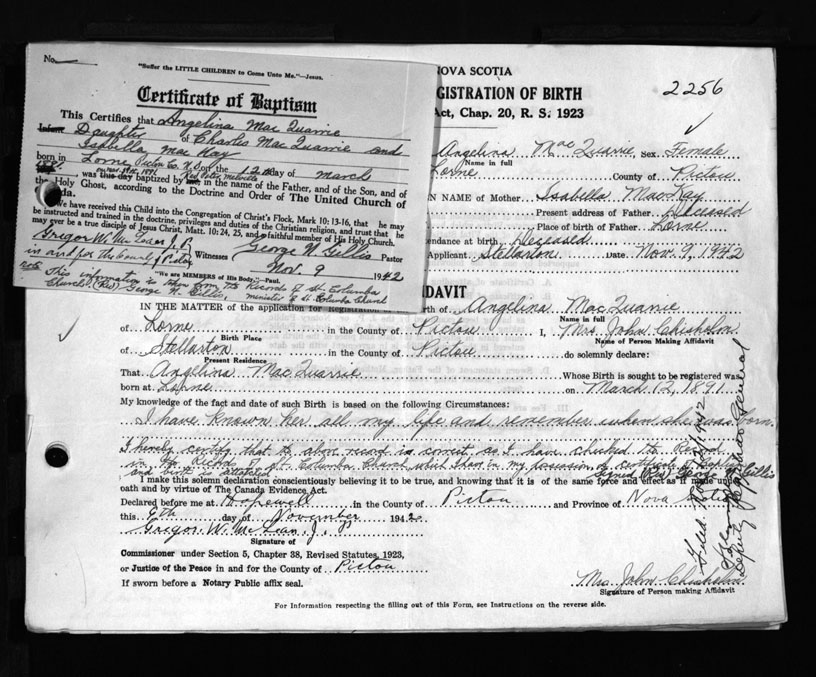 No.
"Suffer the LITTLE CHILDREN to Come Unto Me."—Jesus.
Certificate of Baptism
This Certifies that Angelina Mac Quarrie
Infant Daughter of Charles Mac Quarrie and
Isabella Mac Kay
born in Lorne Pictou Co. N.S. on the 12th day of March
1891, was this day baptized by
in the name of the Father, and of the Son, and of
the Holy Ghost, according to the Doctrine and Order of The United Church of
We have received this Child into the Congregation of Christ's Flock, Mark 10: 13-16, that he may
be instructed and trained in the doctrine, privileges and duties of the Christian religion, and trust that he
may ever be a true disciple of Jesus Christ, Matt. 10: 24, 25, and a faithful member of His Holy Church.
Gregor W. McLean J.P. Witnesses George N. Gillis Pastor
in and for the County Pictou
Nov. 9 1942
"We are MEMBERS of His Body."—Paul.
Note This information is taken from the Records of St. Columba
Church. (Rev) George N. Gillis, minister of St Columba Church
NOVA SCOTIA
2256
REGISTRATION OF BIRTH
Act, Chap. 20, R. S. 1923
Angelina Mac Quarrie, Sex Female
Name in full
Lorne County of Pictou
N NAME of Mother Isabella MacKay
Present address of Father Deceased
Place of birth of Father Lorne
endance at birth Deceased
Applicant Stellarton Date Nov. 9, 1942
DAVIT
IN THE MATTER of the application for Registration of Birth of Angelina MacQuarrie
Name in full
of Lorne in the County of Pictou I, Mrs. John Chisholm
Birth Place Name of Person Making Affidavit
of Stellarton in the County of Pictou do solemnly declare:
Present Residence
That Angelina MacQuarrie Whose Birth is sought to be registered was
born at Lorne on March 12, 1891
My knowledge of the fact and date of such Birth is based on the following Circumstances:
I have known her all my life and remember when she was born.
I hereby certify that the above record is correct, as I have checked the Record
in the Records of St. Columba Church which I have in my possession
and birth is
Signed (Rev) George N. Gillis
I make this solemn declaration conscientiously believing it to be true, and knowing that it is of the same force and effect as if made under
oath and by virtue of The Canada Evidence Act.
Declared before me at Hopewell in the County of Pictou and Province of Nova Scotia
this 9th day of November 1942
Gregor W. McLean J. P.
Signature of
Commissioner under Section 5, Chapter 38, Revised Statutes, 1923,
or Justice of the Peace in and for the County of Pictou
If sworn before a Notary Public affix seal.
Mrs. John Chisholm
Signature of Person making Affidavit
For Information respecting the filling out of this Form, see Instructions on the reverse side.
Deputy Registrar General